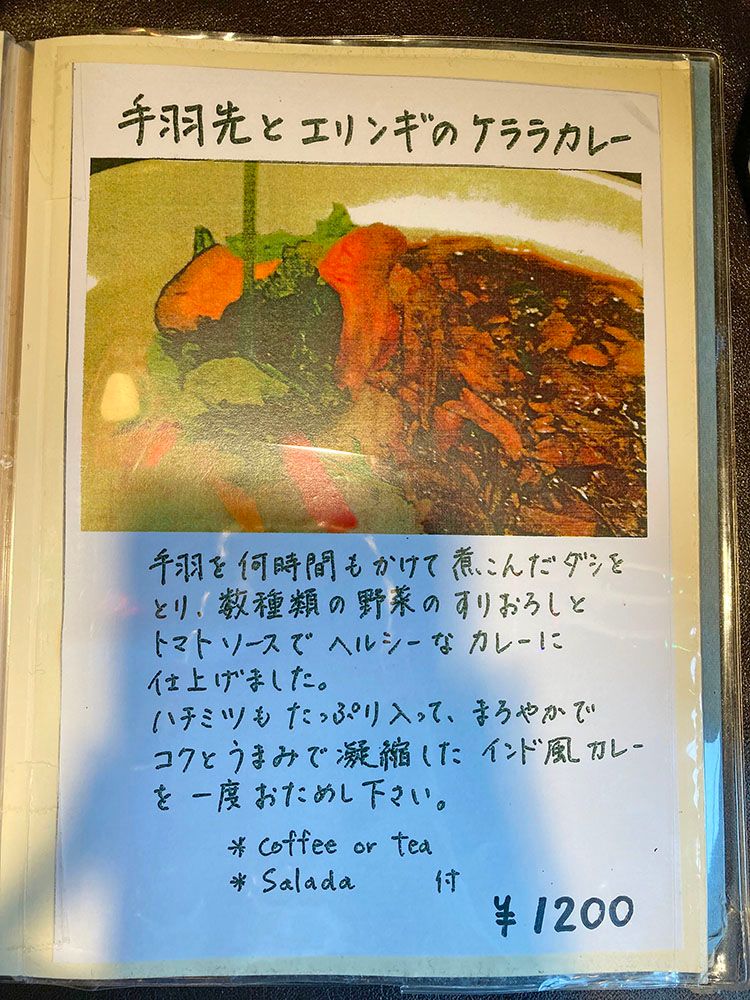 手羽先とエリンギのケララカレー
手羽を何時間もかけて煮こんだダシを
とり、数種類の野菜のすりおろしと
トマトソースでヘルシーなカレーに
仕上げました。
ハチミツもたっぷり入って、まろやかで
コクとうまみで凝縮したインド風カレー
を一度おためし下さい。
* coffee or tea
* Salada 付
¥1200